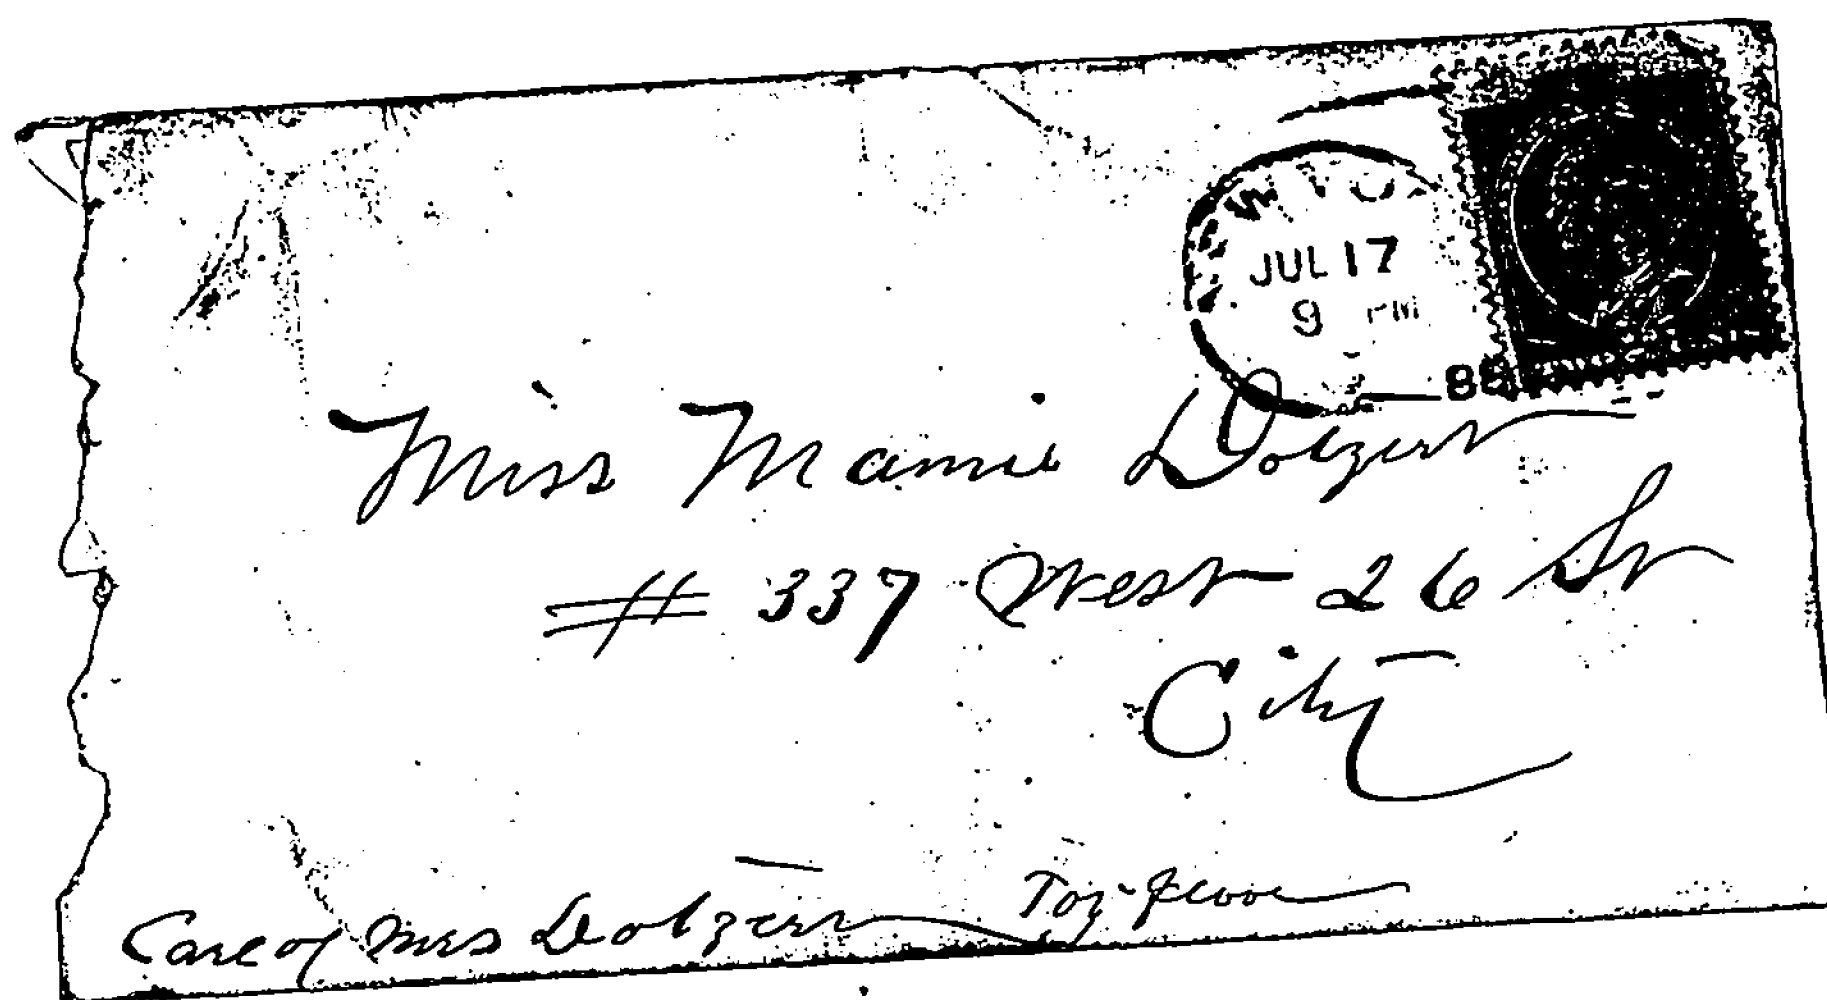 JUL 17
9 PM
88
Miss Mamie Dotzert
# 337 West 26 St
City
Care of Mrs Dotzert Top floor